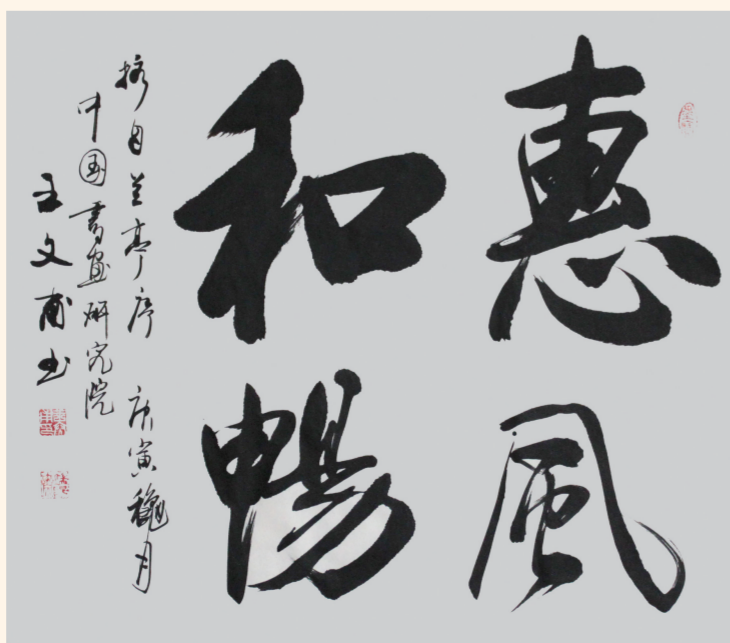 惠風
和暢
摘自兰亭序 庚寅穐月
中国書畫研究院
王文甫书